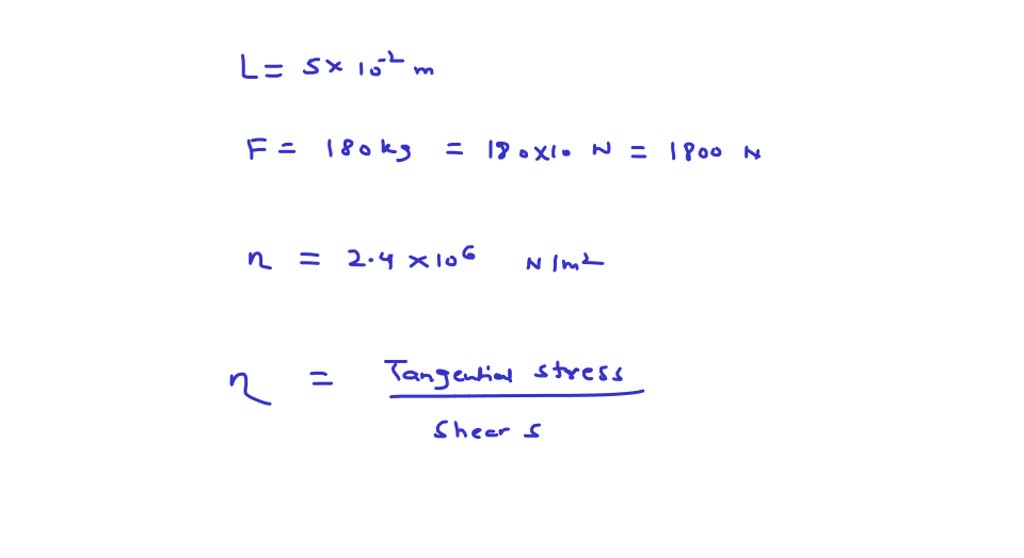 L = 5 × 10⁻² m
F = 180 kg = 180×10 N = 1800 N
η = 2.4 × 10⁶ N/m²
η = Tangential stress
Shear s